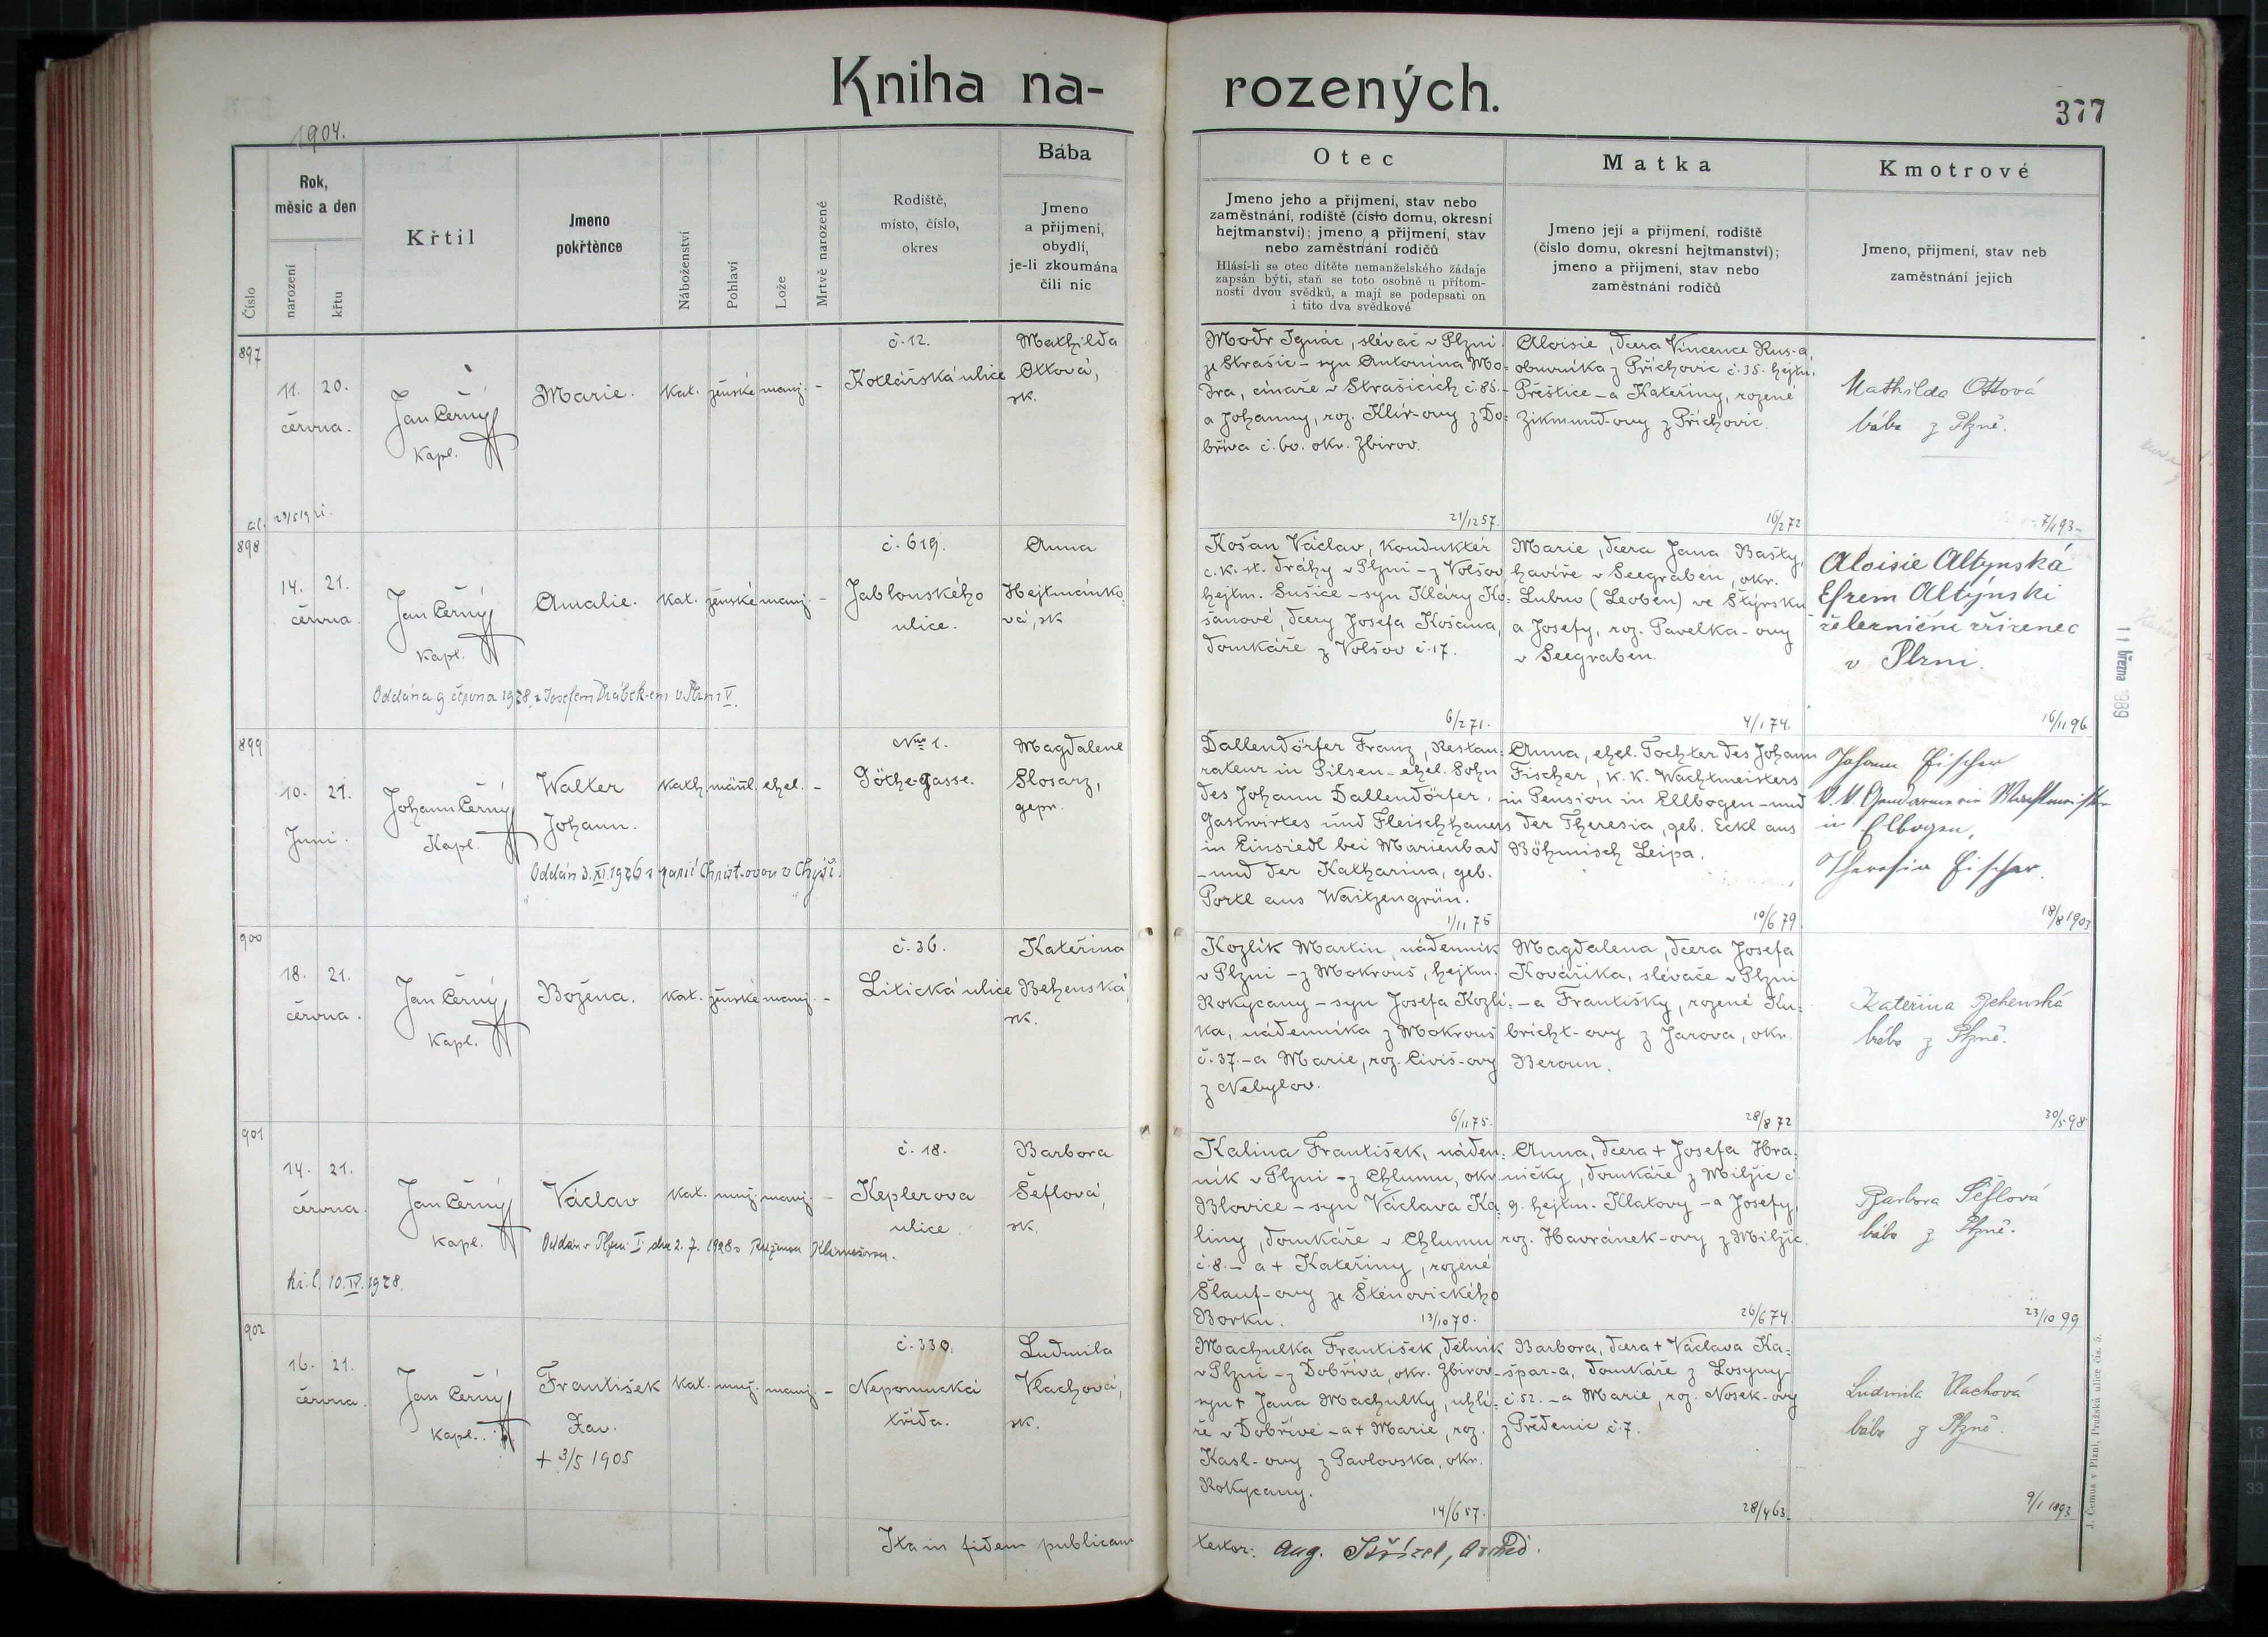 Kniha na-
rozených.
377
1904.
Číslo
Rok,
měsíc a den
narození
křtu
Křtil
Jmeno
pokřtěnce
Náboženství
Pohlaví
Lože
Mrtvě narozené
Rodiště,
místo, číslo,
okres
Bába
Jmeno
a přijmení,
obydlí,
je-li zkoumána
čili nic
Otec
Jmeno jeho a přijmení, stav nebo
zaměstnání, rodiště (číslo domu, okresní
hejtmanství); jmeno a přijmení, stav
nebo zaměstnání rodičů
Hlásí-li se otec dítěte nemanželského žádaje
zapsán býti, staň se toto osobně u přítom-
nosti dvou svědků, a mají se podepsati on
i tito dva svědkové
Matka
Jmeno její a přijmení, rodiště
(číslo domu, okresní hejtmanství);
jmeno a přijmení, stav nebo
zaměstnání rodičů
Kmotrové
Jmeno, přijmení, stav neb
zaměstnání jejich
897
11. 20.
června.
Jan Černý
Kapl.
Marie.
kat. ženské manž. -
č. 12.
Kotlářská ulice
Mathilda
Ottová,
zk.
Modr Ignác, slévač v Plzni
ze Strašic - syn Antonína Mo-
dra, cínaře v Strašicích č. 85. -
a Johanny, roz. Klír-ovy z Do-
bříva č. 60. okr. Zbirov.
21/12 57.
Aloisie, dcera Vincence Rus-a,
obuvníka z Příchovic č. 35. hejtm.
Přeštice - a Kateřiny, rozené
Zikmund-ovy z Příchovic.
16/2 72
Mathilda Ottová
bába z Plzně.
7/1 93-
898
14. 21.
června
Jan Černý
Kapl.
Amalie.
kat. ženské manž. -
č. 619.
Jablonského
ulice.
Anna
Hejtmánko-
vá, zk
Oddána 9. června 1928 s Josefem Drábek-em v Plzni V.
Košan Václav, konduktér
c. k. st. dráhy v Plzni - z Volšov,
hejtm. Sušice - syn Kláry Ko-
šanové, dcery Josefa Košana,
domkáře z Volšov č. 17.
6/2 71.
Marie, dcera Jana Bašty,
havíře v Seegraben, okr.
Lubno (Leoben) ve Štýrsku
a Josefy, roz. Pavelka-ovy
v Seegraben.
4/1 74.
Aloisie Altynská
Efrem Altýnski
železniční zřízenec
v Plzni.
16/11 96
11 března 1989
899
10. 21.
Juni.
Johann Černý
Kapl.
Walter
Johann.
kath. männl. ehel. -
Nro 1.
Göthegasse.
Magdalene
Slosarz,
gepr.
Oddán 3. XI. 1926 s Marií Christ-ovou v Chyši.
Dallendörfer Franz, Restau-
rateur in Pilsen - ehel. Sohn
des Johann Dallendörfer,
Gastwirtes und Fleischhauers
in Einsiedl bei Marienbad
- und der Katharina, geb.
Portl aus Waitzengrün.
1/11 75
Anna, ehel. Tochter des Johann
Fischer, k. k. Wachtmeisters
in Pension in Ellbogen - und
der Theresia, geb. Eckl aus
Böhmisch Leipa.
10/6 79.
Johann Fischer
k. k. Gendarmerie Wachtmeister
in Elbogen,
Theresia Fischer.
18/8 1903
900
18. 21.
června.
Jan Černý
Kapl.
Božena.
kat. ženské manž. -
č. 36.
Litická ulice
Kateřina
Behenská,
zk.
Kozlík Martin, nádenník
v Plzni - z Mokrouš, hejtm.
Rokycany - syn Josefa Kozlí-
ka, nádenníka z Mokrouš
č. 37. - a Marie, roz. Civiš-ovy
z Nebylov.
6/11 75.
Magdalena, dcera Josefa
Kovářika, slévače v Plzni
- a Františky, rozené Ku-
bricht-ovy z Jarova, okr.
Beroun.
28/8 72
Kateřina Behenská
bába z Plzně.
30/5 98
901
14. 21.
června.
Jan Černý
Kapl.
Václav
kat. muž. manž. -
č. 18.
Keplerova
ulice
Barbora
Šeflová,
zk.
Oddán v Plzni I. dne 2. 7. 1928 s
10. IV. 1928.
Kalina František, náden-
ník v Plzni - z Chlumu, okr.
Blovice - syn Václava Ka-
liny, domkáře v Chlumu
č. 8. - a + Kateřiny, rozené
Šlauf-ovy ze Štěnovického
Borku.
13/10 70.
Anna, dcera + Josefa Hra-
ničky, domkáře z Milžic č.
9. hejtm. Klatovy - a Josefy,
roz. Havránek-ovy z Milžic.
26/6 74.
Barbora Šéflová
bába z Plzně.
23/10 99
902
16. 21.
června.
Jan Černý
Kapl.
František
Xav.
+ 3/5 1905
kat. muž. manž. -
č. 330.
Nepomucká
třída.
Ludmila
Vlachová,
zk.
Machulka František, dělník
v Plzni - z Dobříva, okr. Zbirov -
syn + Jana Machulky, uhlí-
ře v Dobřívě - a + Marie, roz.
Kasl-ovy z Pavlovska, okr.
Rokycany.
14/6 57.
Barbora, dcera + Václava Ka-
špar-a, domkáře z Losyny
č. 52. - a Marie, roz. Nosek-ovy
z Předenic č. 7.
28/4 63.
Ludmila Vlachová
bába z Plzně.
9/1 1893
Ita in fidem publicam
testor: Aug.
J. Čemus v Plzni, Pražská ulice čís. 5.